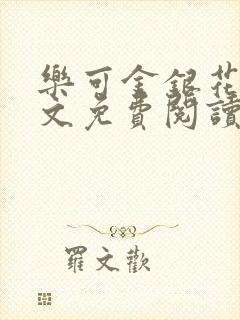 樂可金銀花
文免費閱讀
羅文歡